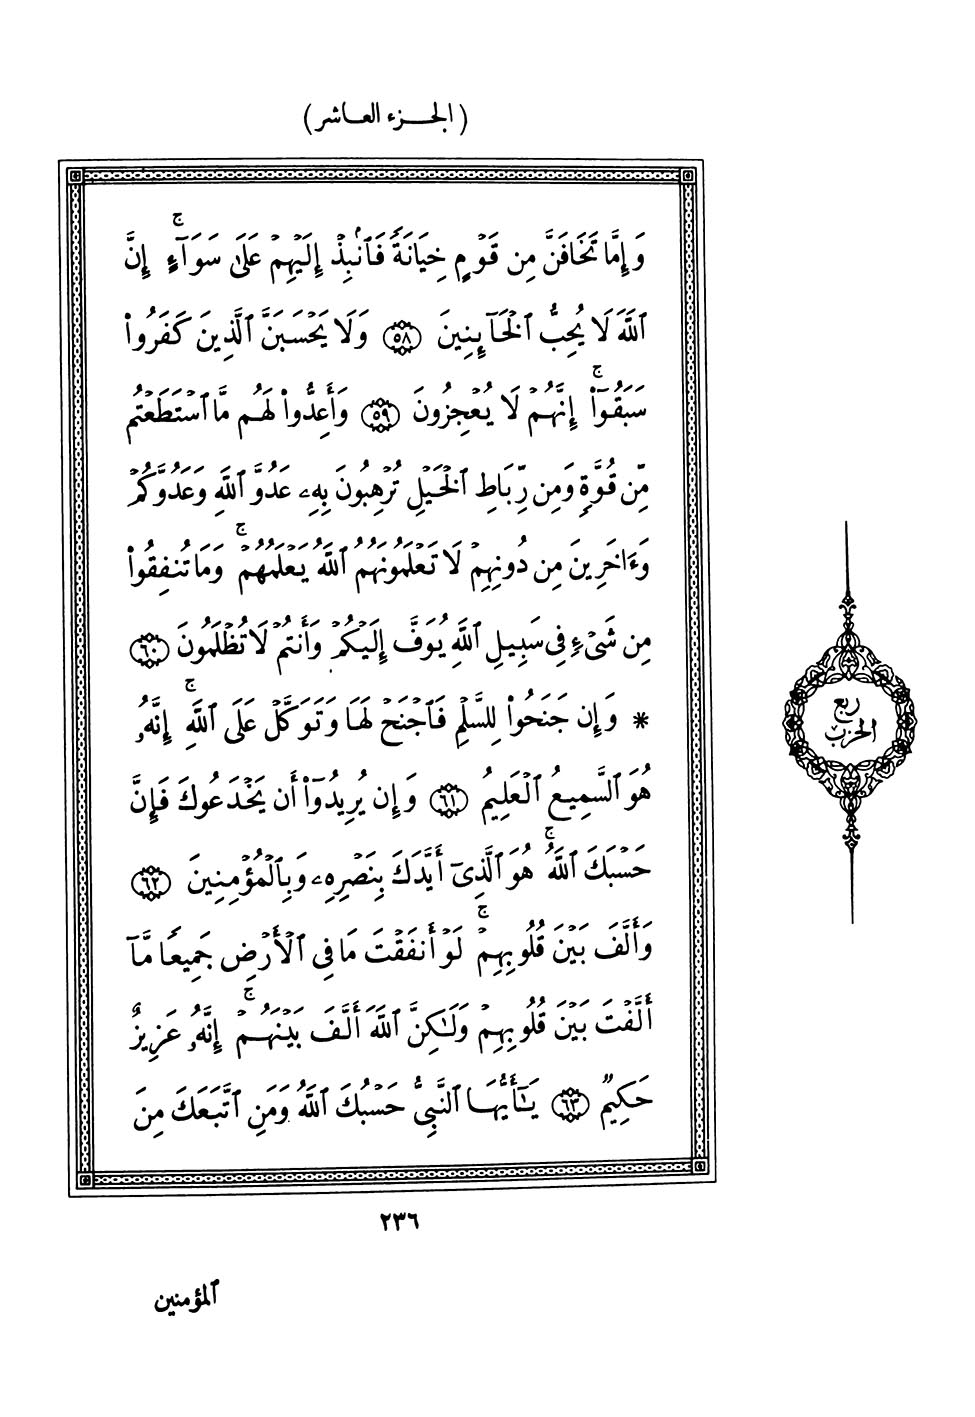 (الجزء العاشر)
وَإِمَّا تَخَافَنَّ مِن قَوْمٍ خِيَانَةً فَٱنۢبِذْ إِلَيْهِمْ عَلَىٰ سَوَآءٍ ۚ إِنَّ
ٱللَّهَ لَا يُحِبُّ ٱلْخَآئِنِينَ ﴿٥٨﴾ وَلَا يَحْسَبَنَّ ٱلَّذِينَ كَفَرُوا۟
سَبَقُوٓا۟ ۚ إِنَّهُمْ لَا يُعْجِزُونَ ﴿٥٩﴾ وَأَعِدُّوا۟ لَهُم مَّا ٱسْتَطَعْتُم
مِّن قُوَّةٍ وَمِن رِّبَاطِ ٱلْخَيْلِ تُرْهِبُونَ بِهِۦ عَدُوَّ ٱللَّهِ وَعَدُوَّكُمْ
وَءَاخَرِينَ مِن دُونِهِمْ لَا تَعْلَمُونَهُمُ ٱللَّهُ يَعْلَمُهُمْ ۚ وَمَا تُنفِقُوا۟
مِن شَىْءٍ فِى سَبِيلِ ٱللَّهِ يُوَفَّ إِلَيْكُمْ وَأَنتُمْ لَا تُظْلَمُونَ ﴿٦٠﴾
* وَإِن جَنَحُوا۟ لِلسَّلْمِ فَٱجْنَحْ لَهَا وَتَوَكَّلْ عَلَى ٱللَّهِ ۚ إِنَّهُۥ
هُوَ ٱلسَّمِيعُ ٱلْعَلِيمُ ﴿٦١﴾ وَإِن يُرِيدُوٓا۟ أَن يَخْدَعُوكَ فَإِنَّ
حَسْبَكَ ٱللَّهُ ۚ هُوَ ٱلَّذِىٓ أَيَّدَكَ بِنَصْرِهِۦ وَبِٱلْمُؤْمِنِينَ ﴿٦٢﴾
وَأَلَّفَ بَيْنَ قُلُوبِهِمْ ۚ لَوْ أَنفَقْتَ مَا فِى ٱلْأَرْضِ جَمِيعًا مَّآ
أَلَّفْتَ بَيْنَ قُلُوبِهِمْ وَلَـٰكِنَّ ٱللَّهَ أَلَّفَ بَيْنَهُمْ ۚ إِنَّهُۥ عَزِيزٌ
حَكِيمٌ ﴿٦٣﴾ يَـٰٓأَيُّهَا ٱلنَّبِىُّ حَسْبُكَ ٱللَّهُ وَمَنِ ٱتَّبَعَكَ مِنَ
ربع
الحزب
٢٣٦
ٱلمؤمنين